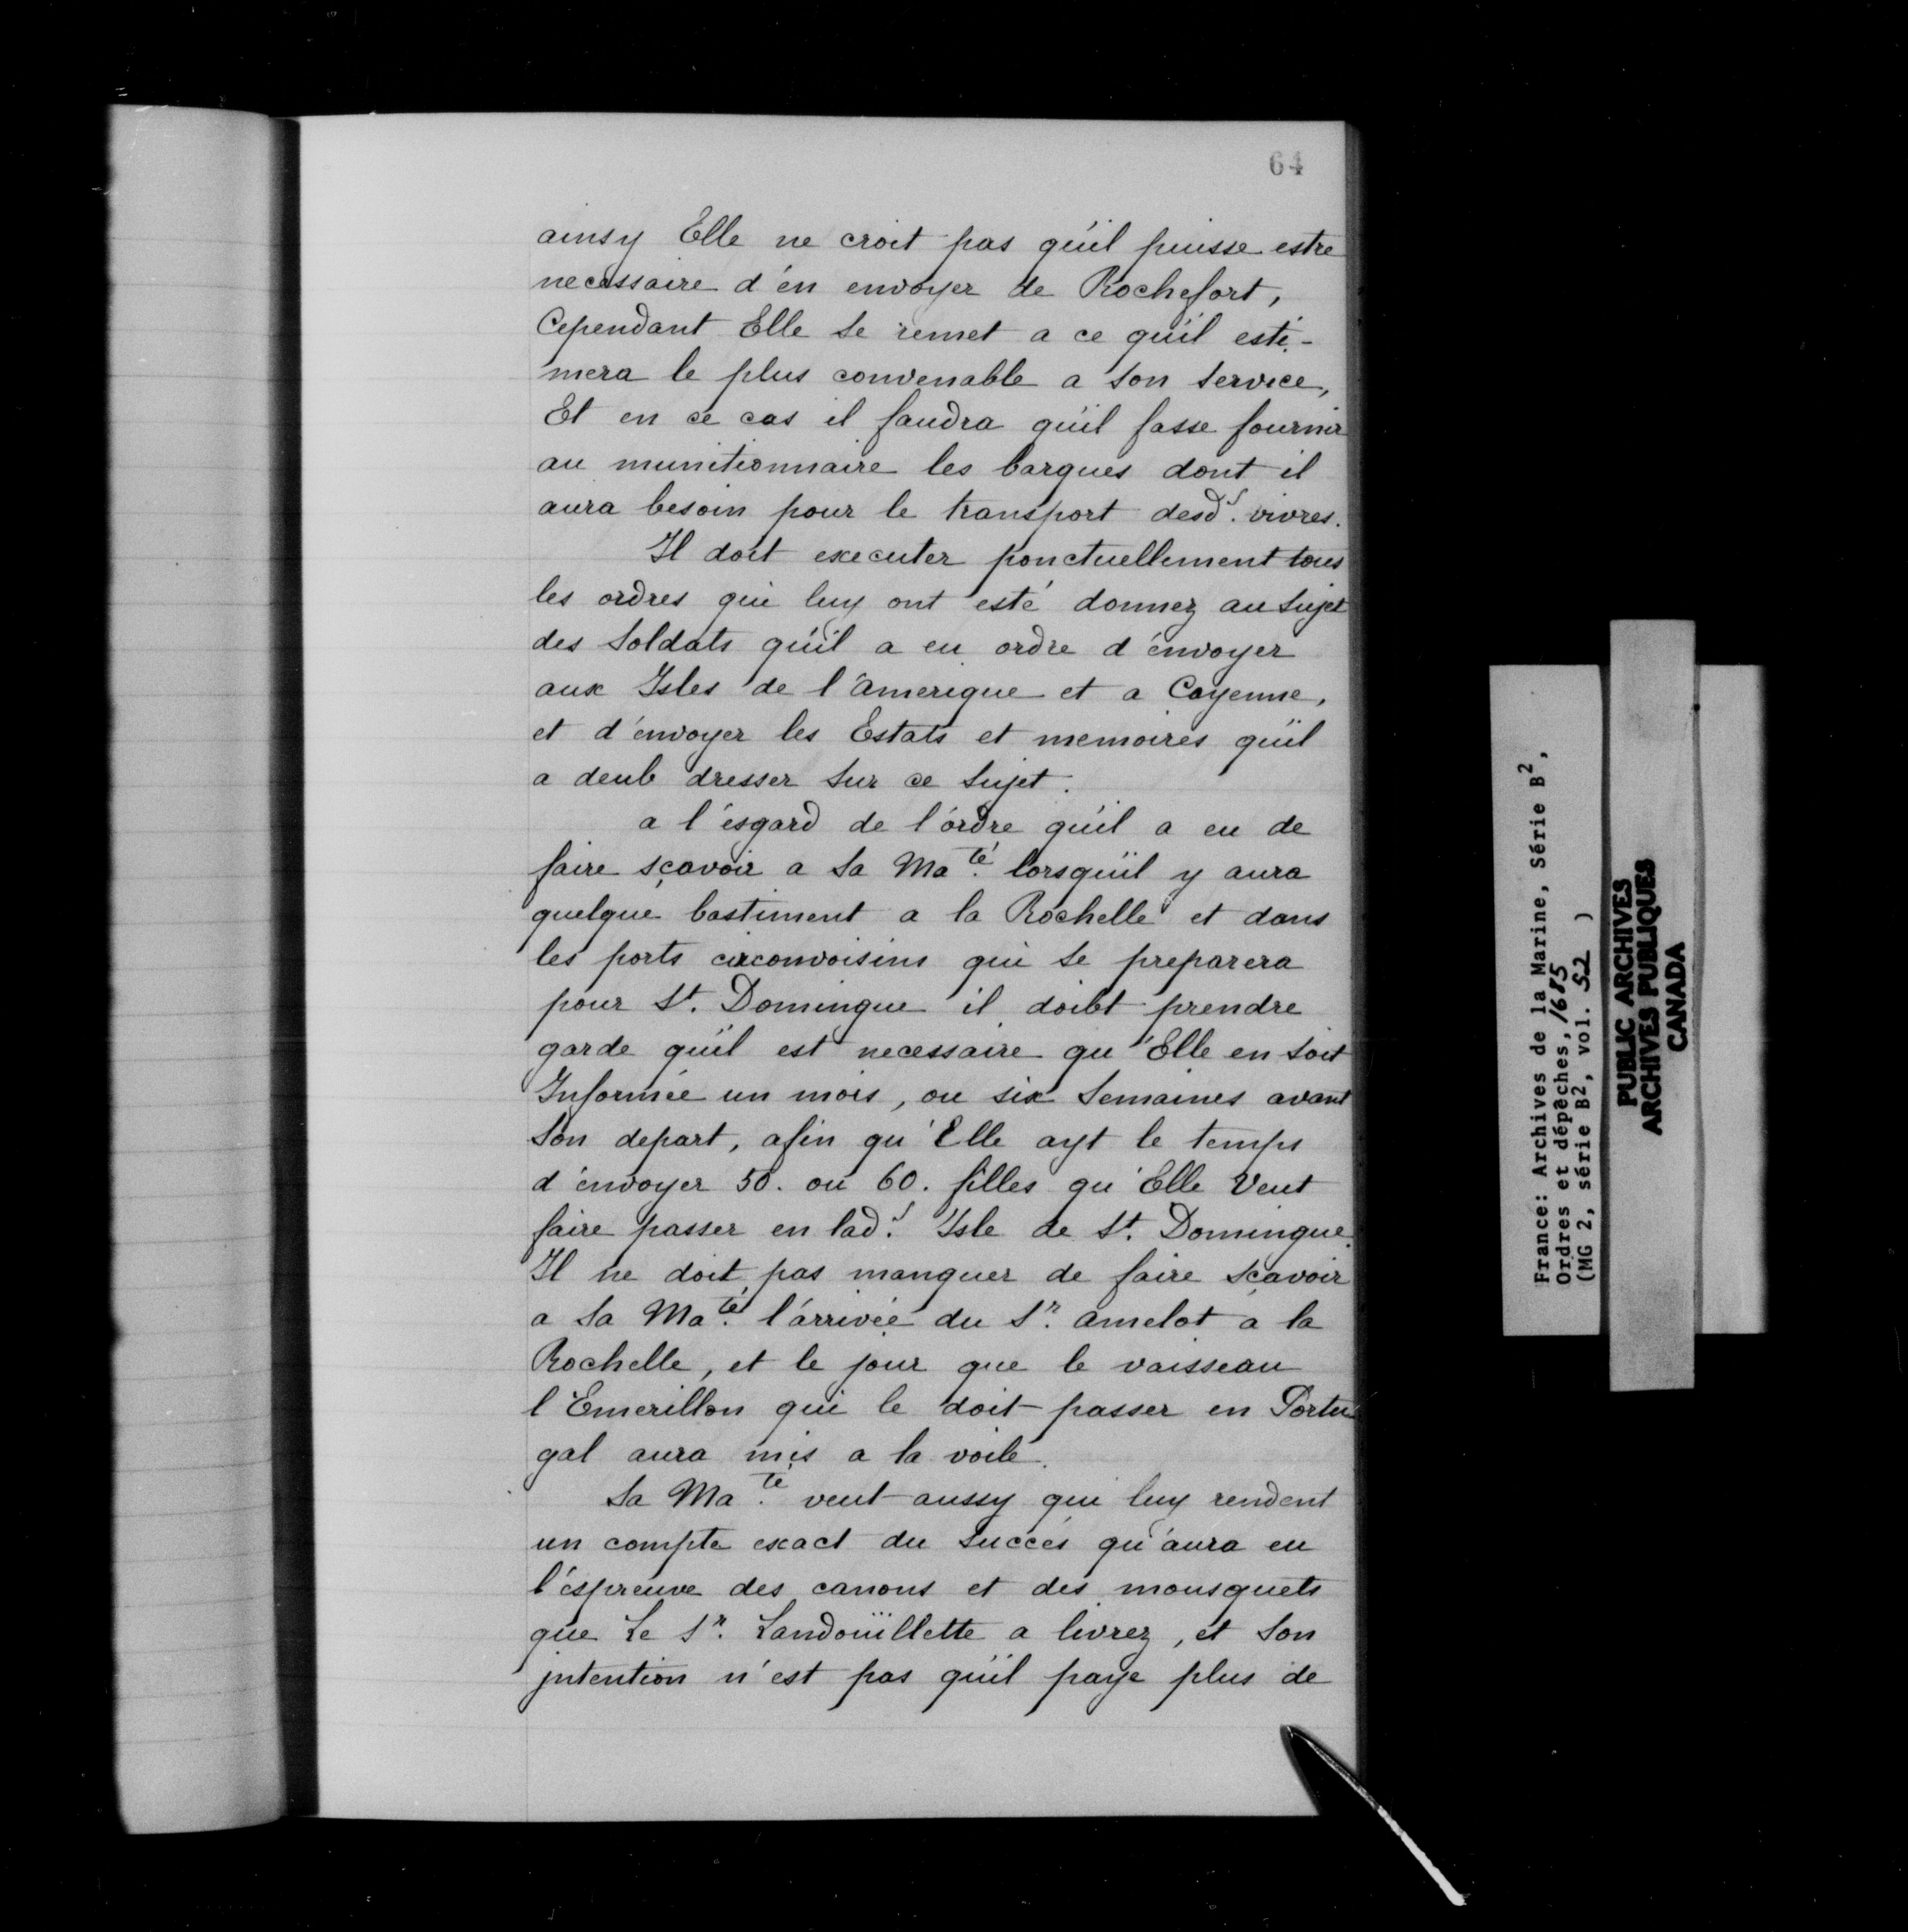 64
ainsy Elle ne croit pas qu'il puisse estre
necessaire d'en envoyer de Rochefort,
Cependant Elle se remet a ce qu'il esti-
mera le plus convenable a son service,
Et en ce cas il faudra qu'il fasse fournir
au munitionnaire les barques dont il
aura besoin pour le transport desd.s vivres.
Il doit executer ponctuellement tous
les ordres qui luy ont esté donnez au sujet
des soldats qu'il a eu ordre d'envoyer
aux Isles de l'amerique et a Cayenne,
et d'envoyer les Estats et memoires qu'il
a deub dresser sur ce sujet.
a l'esgard de l'ordre qu'il a eu de
faire sçavoir a sa Ma.té lorsqu'il y aura
quelque bastiment a la Rochelle et dans
les ports circonvoisins qui se preparera
pour St. Domingue il doibt prendre
garde qu'il est necessaire qu'Elle en soit
Informée un mois, ou six semaines avant
son depart, afin qu'Elle ayt le temps
d'envoyer 50. ou 60. filles qu'Elle Veut
faire passer en lad.s Isle de St. Domingue.
Il ne doit pas manquer de faire sçavoir
a sa Ma.té l'arrivée du Sr. amelot a la
Rochelle, et le jour que le vaisseau
l'Emerillon qui le doit passer en Portu-
gal aura mis a la voile.
Sa Ma.té veut aussy qui luy rendent
un compte exact du succés qu'aura eu
l'espreuve des canons et des mousquets
que Le Sr. Landoüillette a livrez, et son
jntention n'est pas qu'il paye plus de
France: Archives de la Marine, Série B2,
Ordres et dépêches, 1685
(MG 2, série B2, vol. 52 )
PUBLIC ARCHIVES
ARCHIVES PUBLIQUES
CANADA